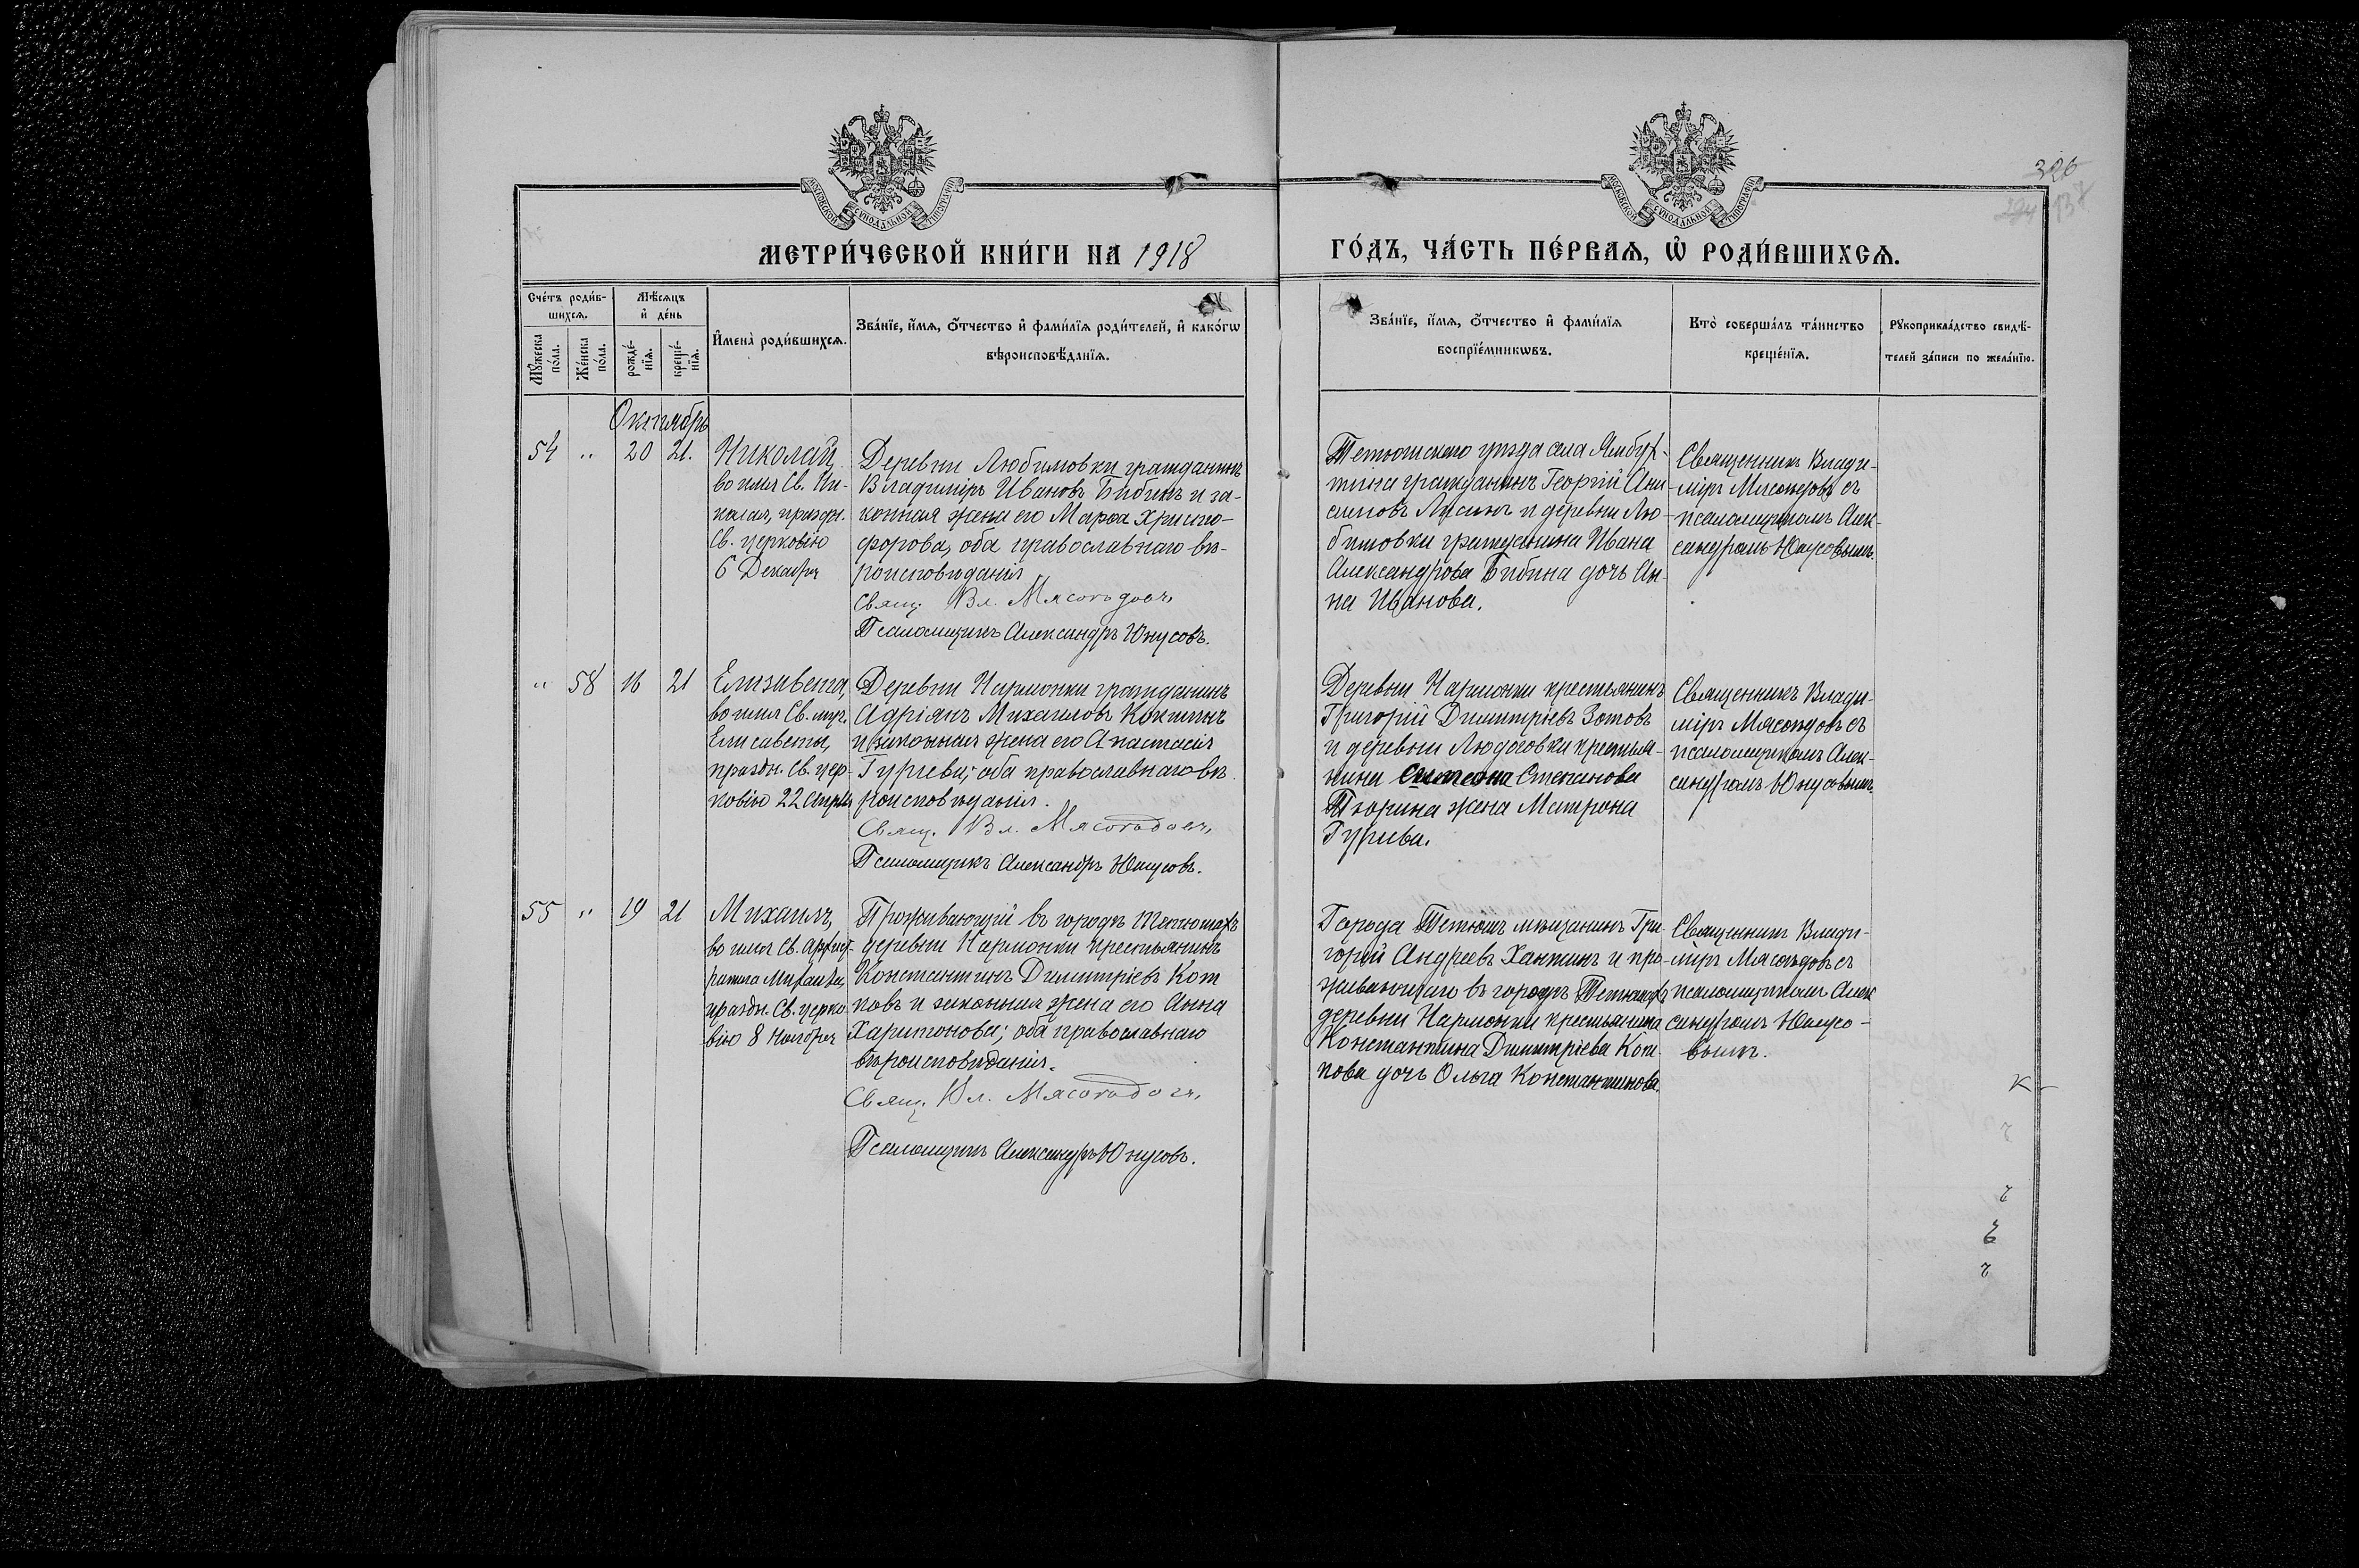 326
МОСКОВСКОЙ СѴНОДАЛЬНОЙ ТИПОГРАФІИ
МОСКОВСКОЙ СѴНОДАЛЬНОЙ ТИПОГРАФІИ
МЕТРИ́ЧЕСКОЙ КНИ́ГИ НА 1918
ГО́ДЪ, ЧА́СТЬ ПЕ́РВАЯ, Ѽ РОДИ́ВШИХСЯ.
Сче́тъ роди́в-
шихся.
Мѣ́сяцъ
и҆ де́нь
Мꙋ́жеска
по́ла.
Же́нска
по́ла.
рожде́-
нїя.
креще́-
нїя.
И҆мена̀ роди́вшихся.
Зва́нїе, и҆́мя, ѻ҆́тчество и҆ фами́лїя роди́телей, и҆ како́гѡ
вѣроисповѣ́данїя.
Зва́нїе, и҆́мя, ѻ҆́тчество и҆ фами́лїя
воспрїе́мникѡвъ.
Кто̀ соверша́лъ та́инство
креще́нїя.
Рꙋкоприкла́дство свидѣ́-
телей за́писи по жела́нїю.
Октябрь
54 " 20 21.
Николай,
во имя Св. Ни-
колая, праздн.
Св. церковію
6 Декабря
Деревни Любимовки гражданинъ
Владиміръ Ивановъ Бибинъ и за-
конная жена его Марѳа Христо-
форова, оба православнаго вѣ-
роисповѣданія
Свящ. Вл. Мясоѣдовъ
Псаломщикъ Александръ Юнусовъ.
Тетюшскаго уѣзда села Ямбух-
тина гражданинъ Георгій Ани
симовъ Лисинъ и деревни Лю-
бимовки гражданина Ивана
Александрова Бибина дочь Ан-
на Иванова.
Священникъ Влади-
міръ Мясоѣдовъ съ
псаломщикомъ Алек-
сандромъ Юнусовымъ.
" 58 16 21
Елизавета,
во имя Св. муч.
Елисаветы,
праздн. Св. цер-
ковію 22 Апрѣля
Деревни Нармонки гражданинъ
Адріанъ Михаиловъ Коктинъ
и законная жена его Анастасія
Гурьева; оба православнаго вѣ
роисповѣданія.
Свящ. Вл. Мясоѣдовъ
Псаломщикъ Александръ Юнусовъ.
Деревни Нармонки крестьянинъ
Григорій Димитріевъ Зотовъ
и деревни Людоговки крестья-
нина Симеона Степанова
Тюрина жена Матрона
Гурьева.
Священникъ Влади-
міръ Мясоѣдовъ съ
псаломщикомъ Алек-
сандромъ Юнусовымъ.
55 " 19 21
Михаилъ,
во имя Св. Архист-
ратига Михаила,
праздн. Св. церко-
вію 8 Ноября
Проживающій въ городѣ Тетюшахъ
деревни Нармонки крестьянинъ
Константинъ Димитріевъ Кот
ковъ и законная жена его Анна
Харитонова; оба православнаго
вѣроисповѣданія.
Свящ. Вл. Мясоѣдовъ
Псаломщикъ Александръ Юнусовъ.
Города Тетюшъ мѣщанинъ Гри-
горій Андреевъ Хантинъ и про-
живающаго въ городѣ Тетюшахъ
деревни Нармонки крестьянина
Константина Димитріева Кот-
кова дочь Ольга Константинова.
Священникъ Влади-
міръ Мясоѣдовъ съ
псаломщикомъ Алек
сандромъ Юнусо-
вымъ.